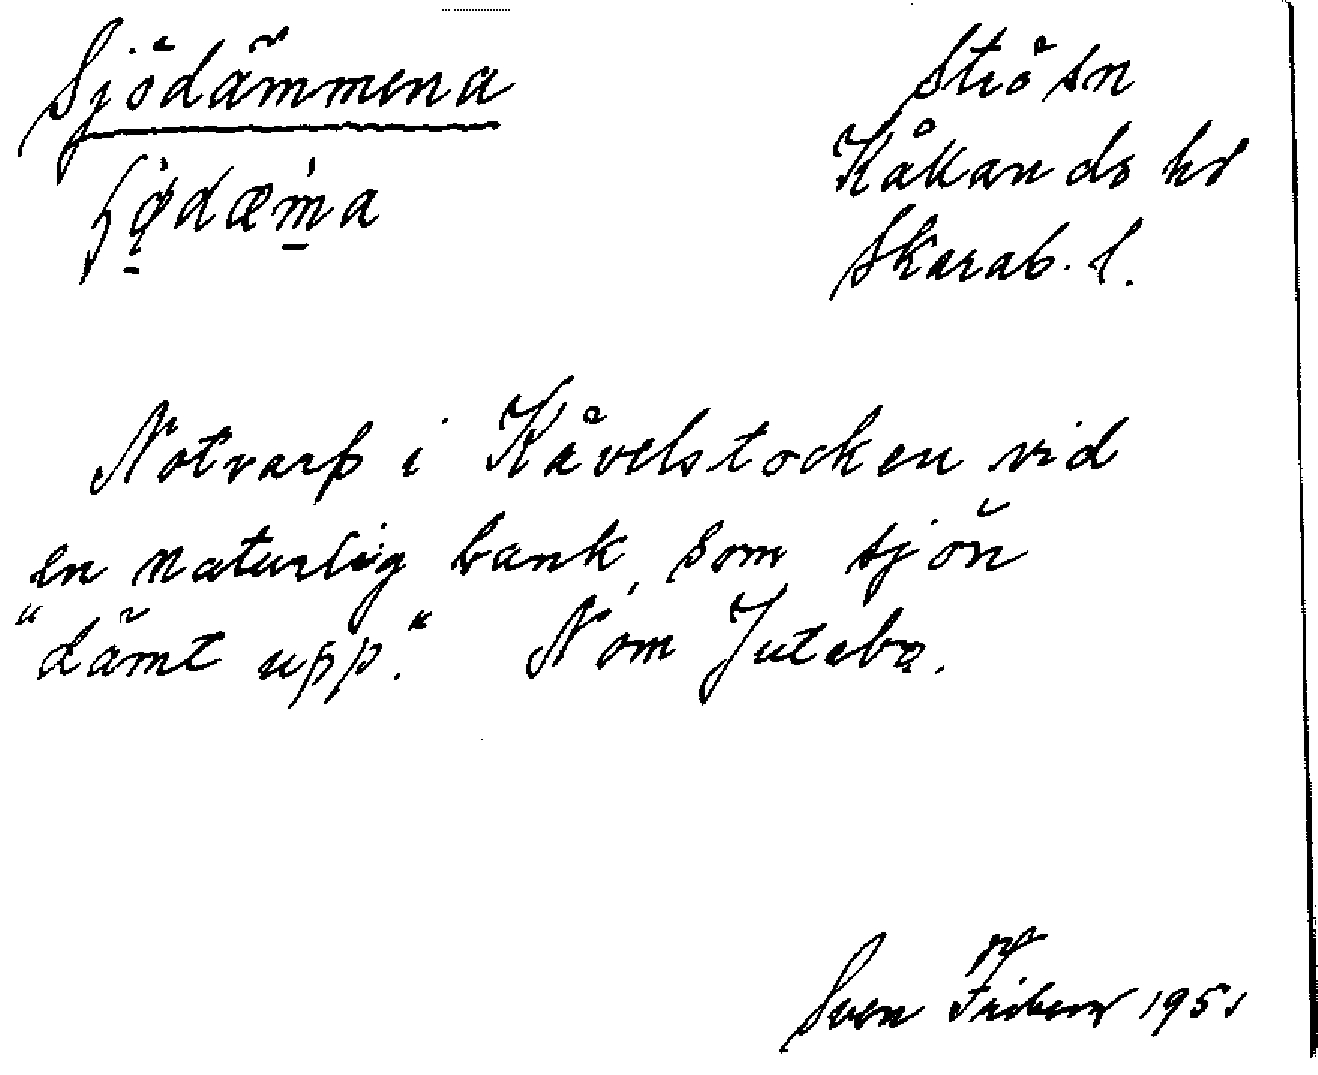 Sjödämmena
Strö sn
Kållands hd
Skarab. l.
Notvarp i Kåvelstocken vid
en naturlig bank, som sjön
"dämt upp." N om Jutebo.
Sven Friberg 1951